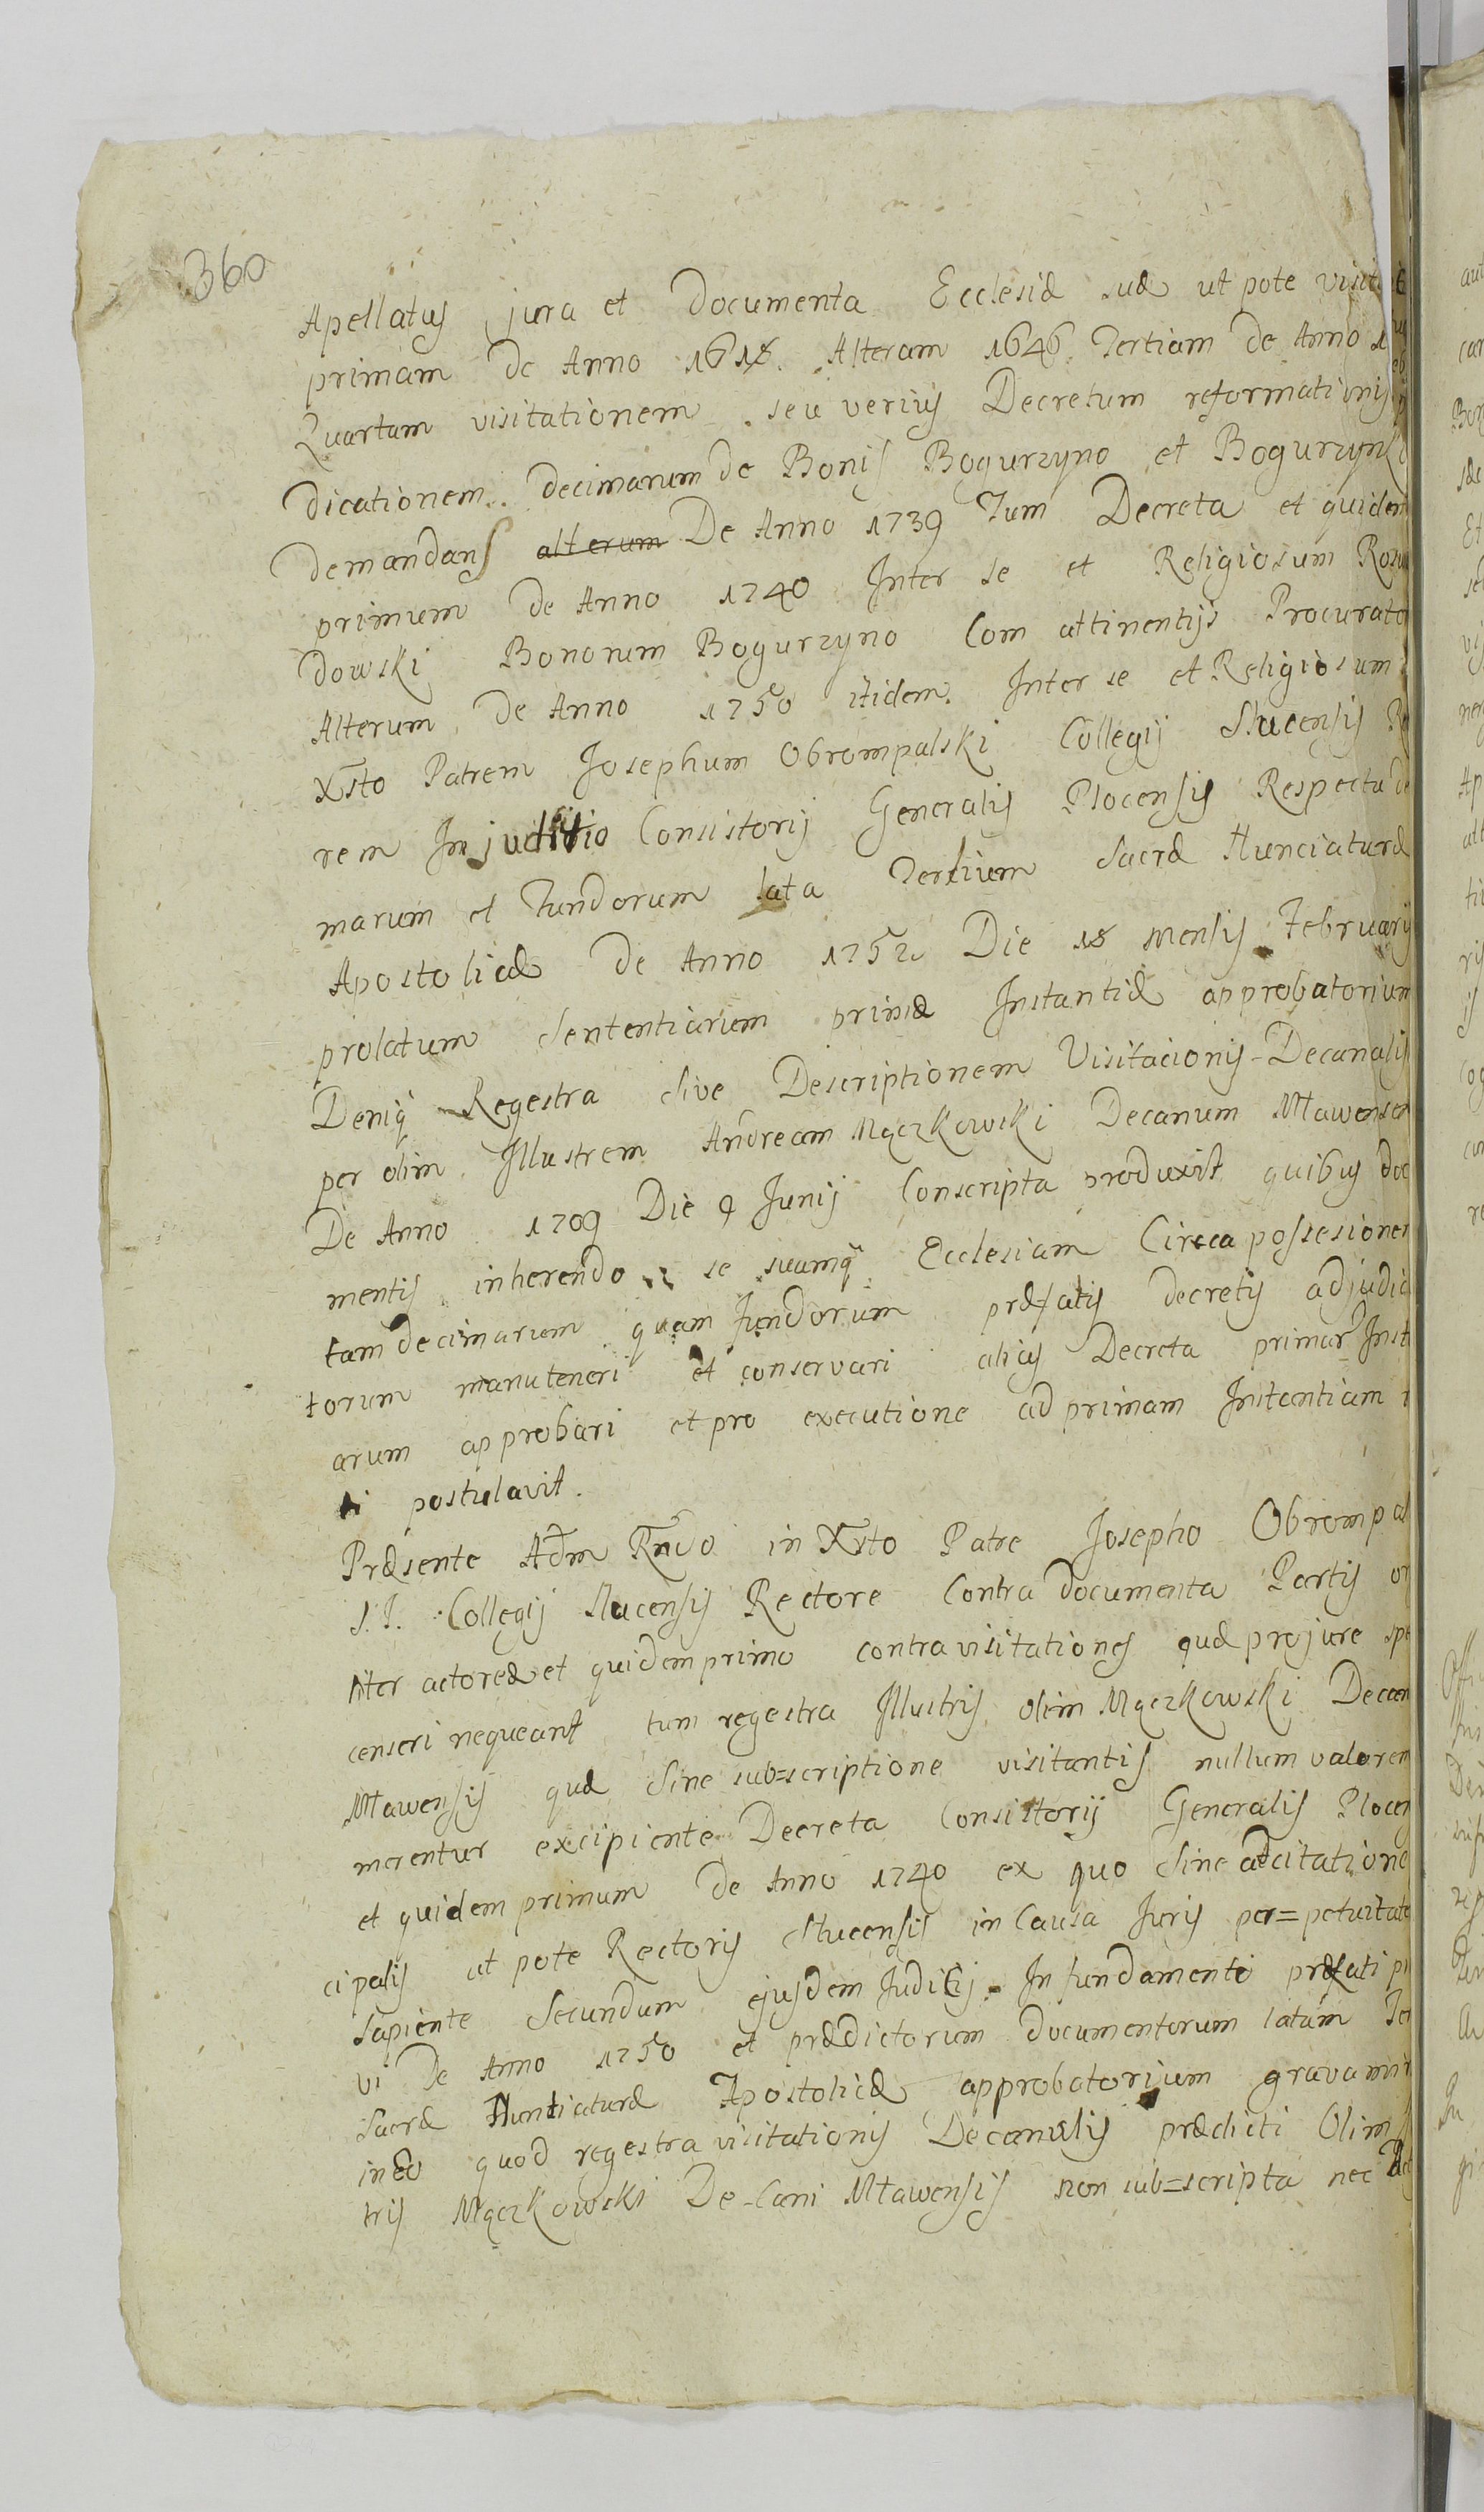 360
Apellatus jura et Documenta Ecclesiæ suæ ut pote visit
primam de Anno 1618. Alteram 1646. Tertiam de Anno 1
Quartam visitationem seu verius Decretum reformationis
dicationem decimarum de Bonis Bogurzyno et Bogurzynk
demandans alterum De Anno 1739 Tum Decreta et quidem
primum de Anno 1740 Inter se et Religiosum Ros
dowski Bonorum Bogurzyno Com attinentijs Procurato
Alterum de Anno 1750 itidem Inter se et Religiosum
Xsto Patrem Josephum Obrompalski Collegij Slucensis Re
rem In juditio Consistorij Generalis Plocensis Respectu de
marum et Fundorum lata Tertium Sacræ Nunciaturæ
Apostolicæ de Anno 1752 Die 18 mensis Februarij
prolatum Sententiarum primæ Instantiæ approbatorium
Deniq Regestra Sive Descriptionem Visitacionis Decanalis
per olim Illustrem Andream Mączkowski Decanum Mlawensem
De Anno 1709 Die 9 Junij Conscripta produxit quibus doc
mentis inherendo se suamq Ecclesiam Circa possesionem
tam decimarum quam fundorum præfatis decretis adjudic
torum manuteneri et conservari alias Decreta primar Inst
arum approbari et pro executione ad primam Instantiam r
ti postulavit.
Præsente Adm Rndo in Xsto Patre Josepho Obrompal
S. J. Collegij Slucensis Rectore Contra documenta Partis or
liter actoreæ et quidem primo contra visitationes quæ pro jure spe
censeri nequeant tum regestra Illustris olim Mączkowski Decan
Mlawensis quæ Sine sub=scriptione visitantis nullum valorem
merentur excipiente Decreta Consistorij Generalis Plocen
et quidem primum de Anno 1740 ex quo Sine adcitatione
cipalis ut pote Rectoris Slucensis in Causa Juris per=petuitate
sapiente Secundum ejusdem Judicij In fundamento præfati pr
vi De Anno 1750 et prædictorum documentorum latam Ter
Sacræ Nuntiaturæ Apostolicæ approbatorium gravamin
in eo quod regestra visitationis Decanalis prædicti Olim
tris Mączkowski De-Cani Mlawensis non sub=scripta nec